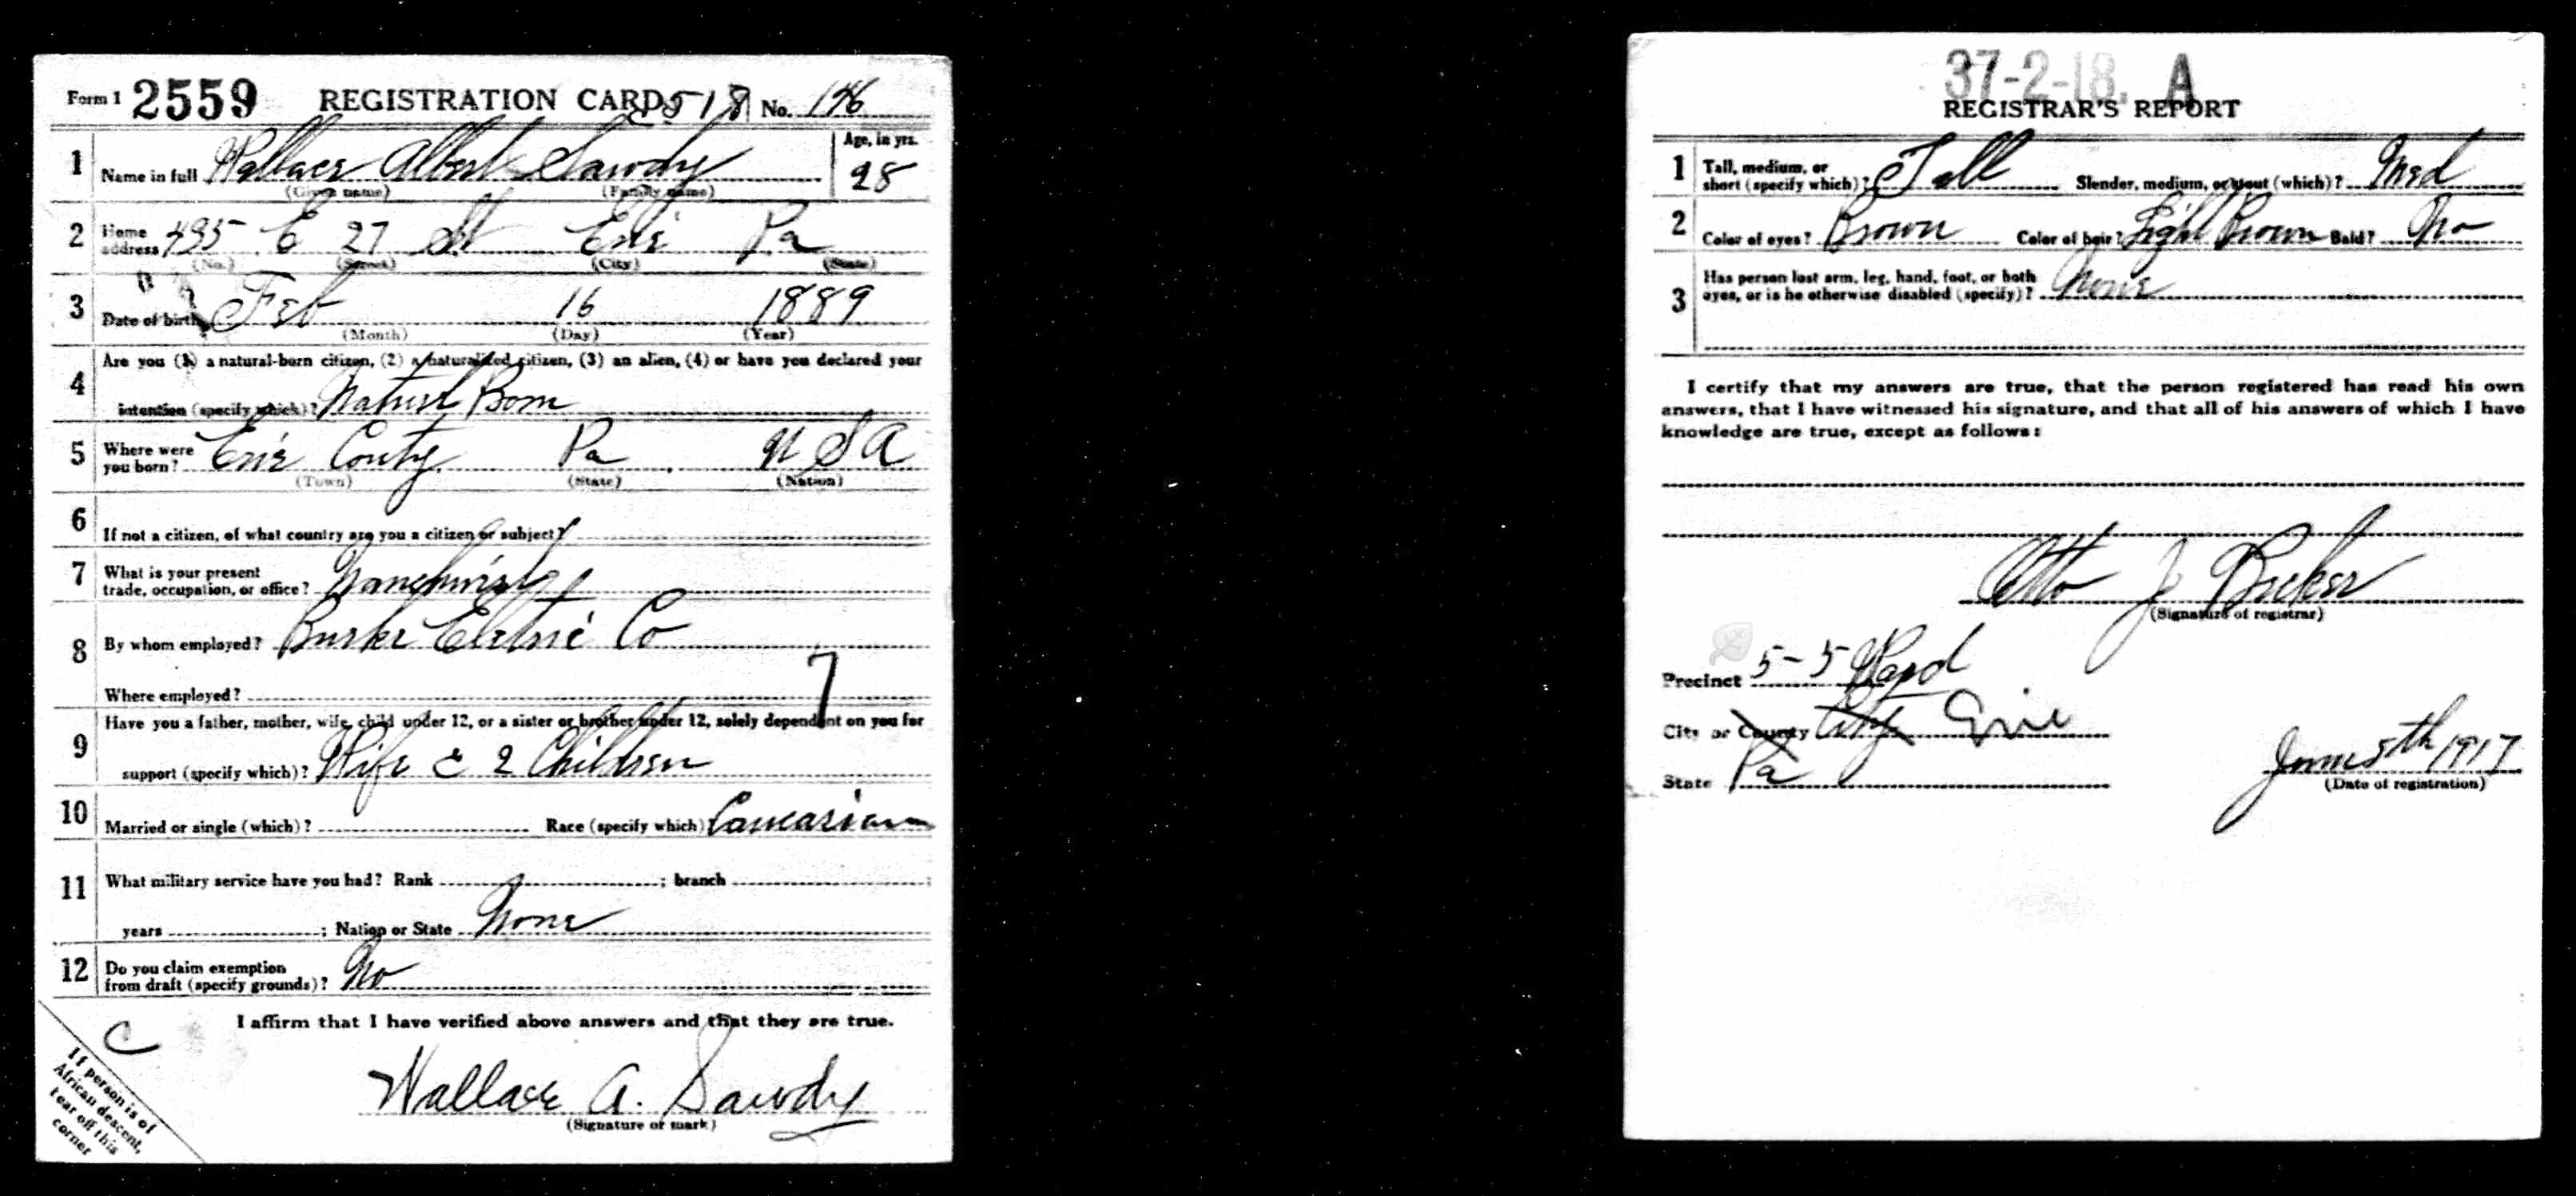 Form 1 2559 REGISTRATION CARD 2518 No. 146
1 Name in full Wallace Albert Sawdy Age, in yrs. 28
(Given name) (Family name)
2 Home address 495 E 27 St Erie Pa
(No.) (Street) (City) (State)
3 Date of birth Feb 16 1889
(Month) (Day) (Year)
4 Are you (1) a natural-born citizen, (2) a naturalized citizen, (3) an alien, (4) or have you declared your
intention (specify which)? Natural Born
5 Where were you born? Erie County Pa U S A
(Town) (State) (Nation)
6 If not a citizen, of what country are you a citizen or subject?
7 What is your present
trade, occupation, or office?
8 By whom employed? Burke Electric Co
Where employed?
7
9 Have you a father, mother, wife, child under 12, or a sister or brother under 12, solely dependent on you for
support (specify which)? Wife & 2 Children
10 Married or single (which)? Race (specify which)? Caucasian
11 What military service have you had? Rank ; branch ;
years ; Nation or State None
12 Do you claim exemption
from draft (specify grounds)? No
I affirm that I have verified above answers and that they are true.
C
If person is of
African descent,
tear off this
corner
Wallace A. Sawdy
(Signature or mark)
37-2-18. A
REGISTRAR'S REPORT
1 Tall, medium, or
short (specify which)? Tall Slender, medium, or stout (which)? Med
2 Color of eyes? Brown Color of hair? Light Brown Bald? No
3 Has person lost arm, leg, hand, foot, or both
eyes, or is he otherwise disabled (specify)? None
I certify that my answers are true, that the person registered has read his own
answers, that I have witnessed his signature, and that all of his answers of which I have
knowledge are true, except as follows:
Otto J
(Signature of registrar)
Precinct 5-5 Ward
City or County City Erie
State Pa
June 5th 1917
(Date of registration)